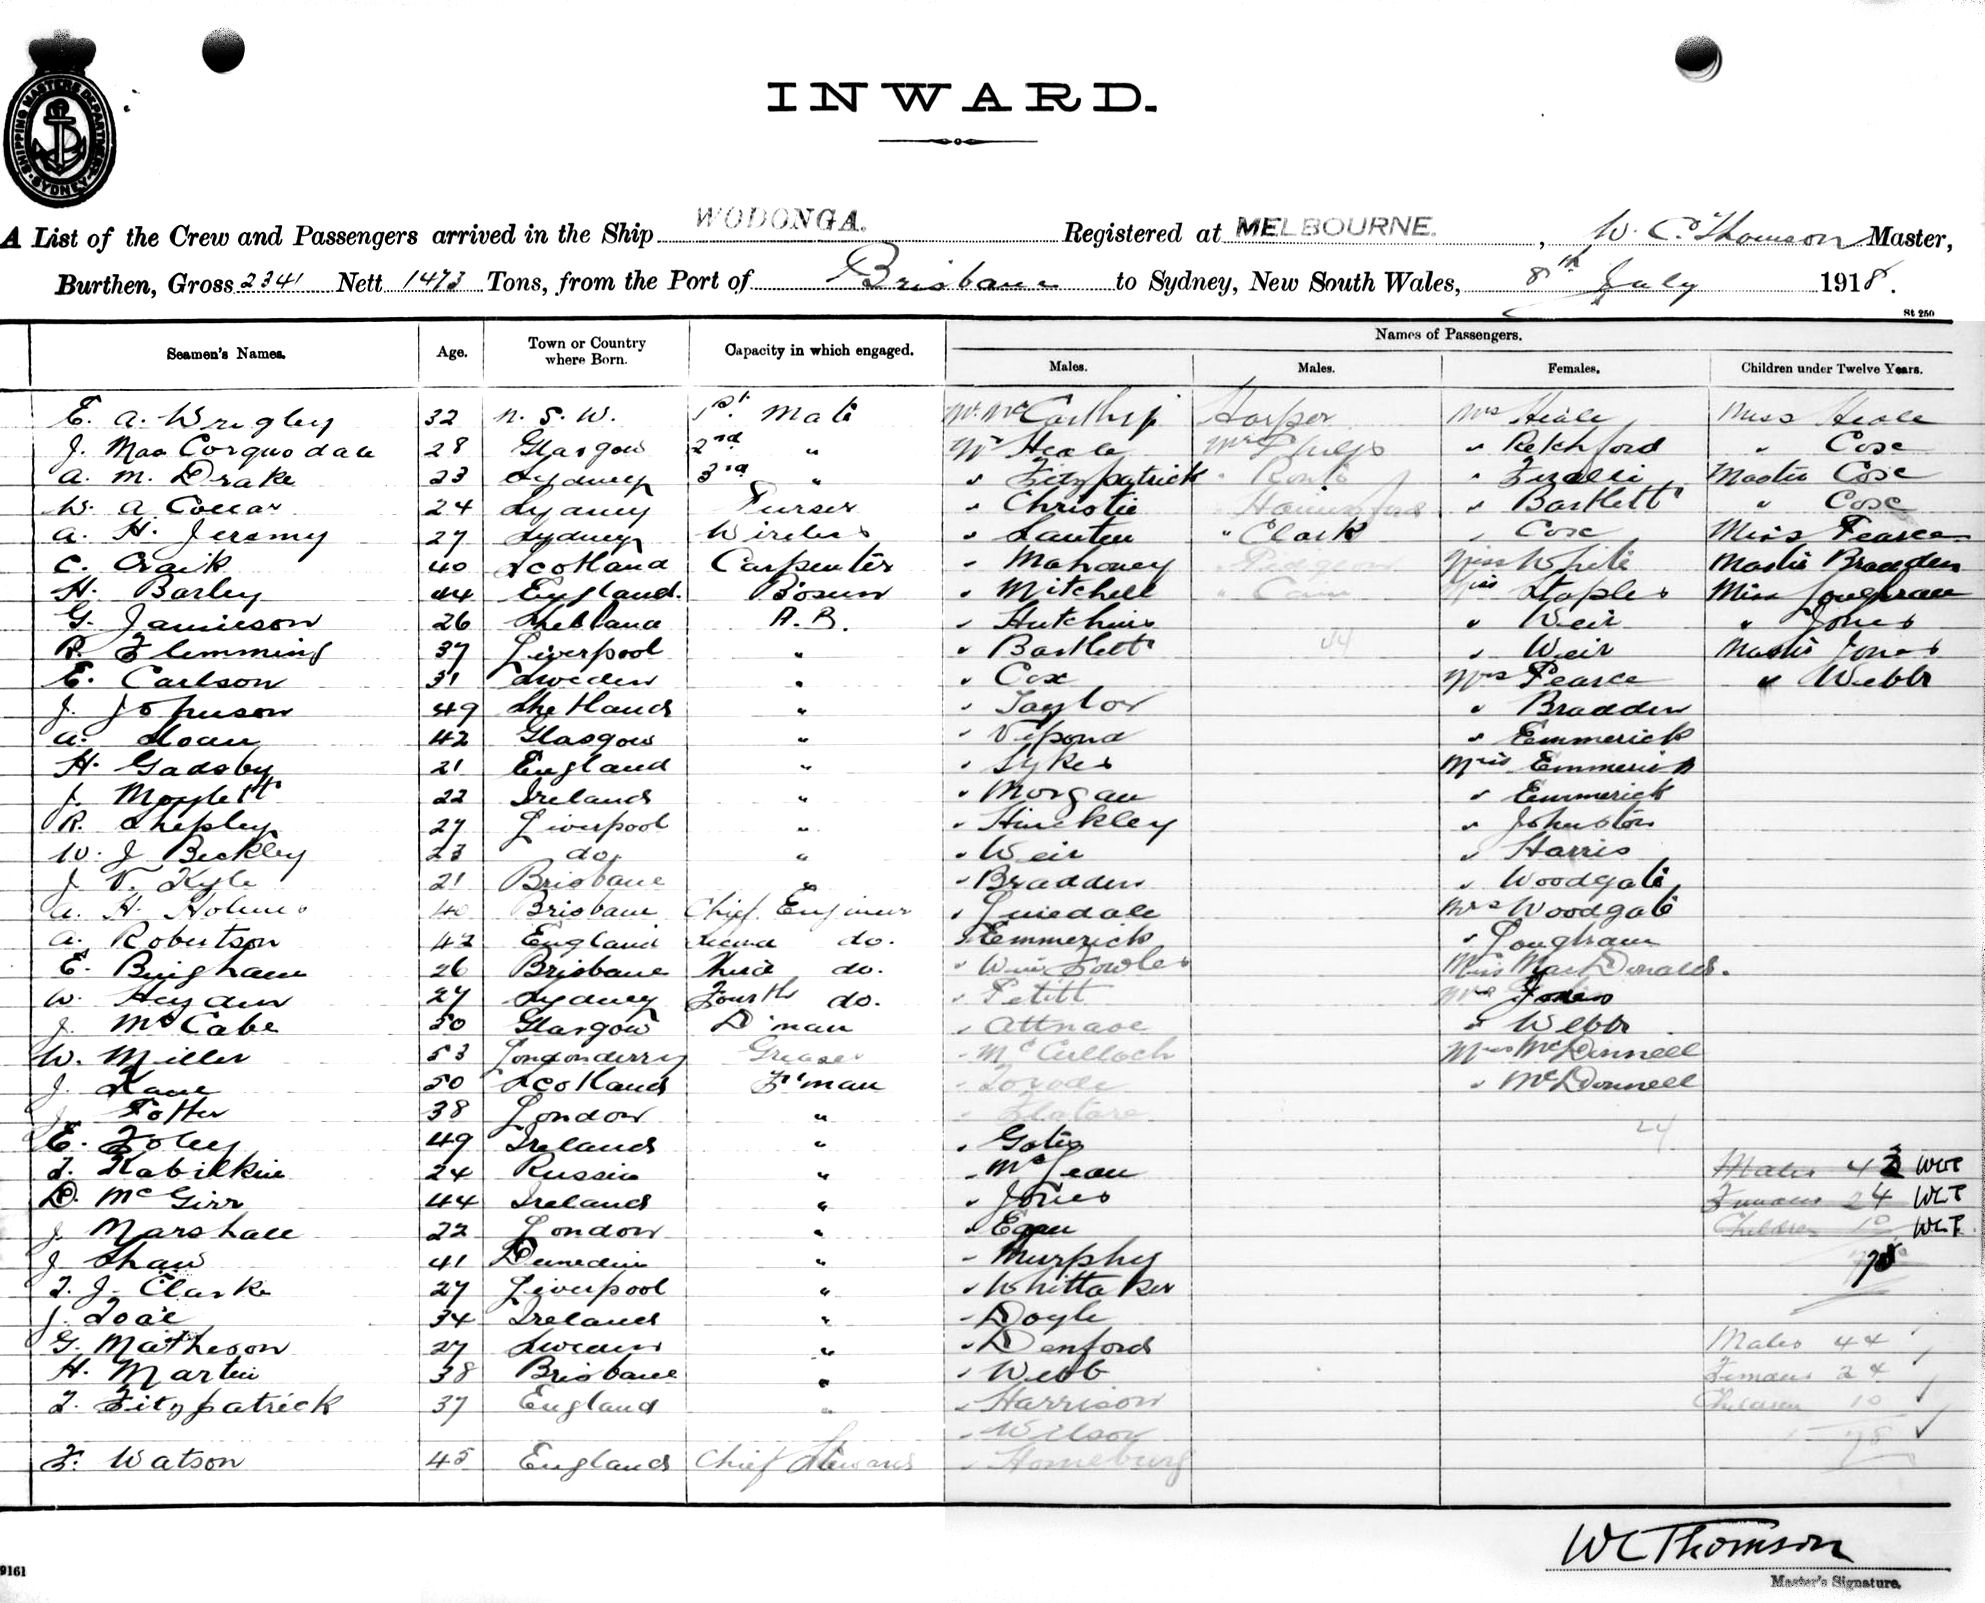 SHIPPING MASTERS DEPARTMENT SYDNEY
INWARD.
A List of the Crew and Passengers arrived in the Ship WODONGA. Registered at MELBOURNE. , W. C. Thomson Master,
Burthen, Gross 2341 Nett 1473 Tons, from the Port of Brisbane to Sydney, New South Wales, 8th July 1918.
St 250
Seamen's Names. Age. Town or Country where Born. Capacity in which engaged. Names of Passengers.
Males. Males. Females. Children under Twelve Years.
E. A. Wrigley 32 N. S. W. 1st Mate Mr McCarthy Harper Mrs Heale Miss Heale
J. MacCorquodale 28 Glasgow 2nd " Mr Heale Mr Phelps " Retchford " Cox
A. M. Drake 23 Sydney 3rd " " Fitzpatrick " " Master Cox
W. A. 24 Sydney Purser " Christie " " Bartlett " Cox
A. H. Jeremy 27 Sydney Wireless " " Clark " Cox Miss Pearce
C. Craik 40 Scotland Carpenter " Mahoney Miss White Master Bradden
H. Barley 44 England. Bosun " Mitchell " Cain Miss Staples Miss Loughran
G. Jamieson 26 Shetland A. B. " Hutchins " Weir " Jones
R. Flemming 37 Liverpool " " Bartlett 44 " Weir Master Jones
E. Carlson 31 Sweden " " Cox Mrs Pearce " Webb
J. Johnson 49 Shetlands " " Taylor " Bradden
A. Sloan 42 Glasgow " " Vipond " Emmerick
H. Gadsby 21 England " " Sykes Miss Emmerick
J. Moylett 22 Ireland " " Morgan " Emmerick
R. Shepley 27 Liverpool " " Hinckley " Johnston
W. J Beckley 23 do. " " Weir " Harris
J V. Kyle 21 Brisbane " " Bradden " Woodgate
A. H. Holmes 40 Brisbane Chief Engineer " Mrs Woodgate
A. Robertson 42 England Second do. " Emmerick " Loughran
E. Bingham 26 Brisbane Third do. " Fowles Miss MacDonald.
W. 27 Sydney Fourth do. " Petitt Mrs Jones
J. McCabe 50 Glasgow D'man " " Webb
W. Miller 53 Londonderry Greaser " McCulloch Miss McDonnell
J. Kane 50 Scotland F'man " " McDonnell
J. Potter 38 London " "
E. Foley 49 Ireland " " 24
24 Russia " " McLean Males 43 WCT
D. McGirr 44 Ireland " " Jones Females 24 WCT
J Marshall 22 London " " Egan Children 10 WCT
J Shaw 41 Dunedin " " Murphy 78
T. J. Clarke 27 Liverpool " " Whittaker
J. 34 Ireland " " Doyle
G. Matheson 27 Sweden " " Denford Males 44
H. Martin 38 Brisbane " " Webb Females 24
T. Fitzpatrick 37 England " " Harrison Children 10
" Wilson 78
F. Watson 45 England Chief Steward "
WCThomson
Master's Signature.
9161